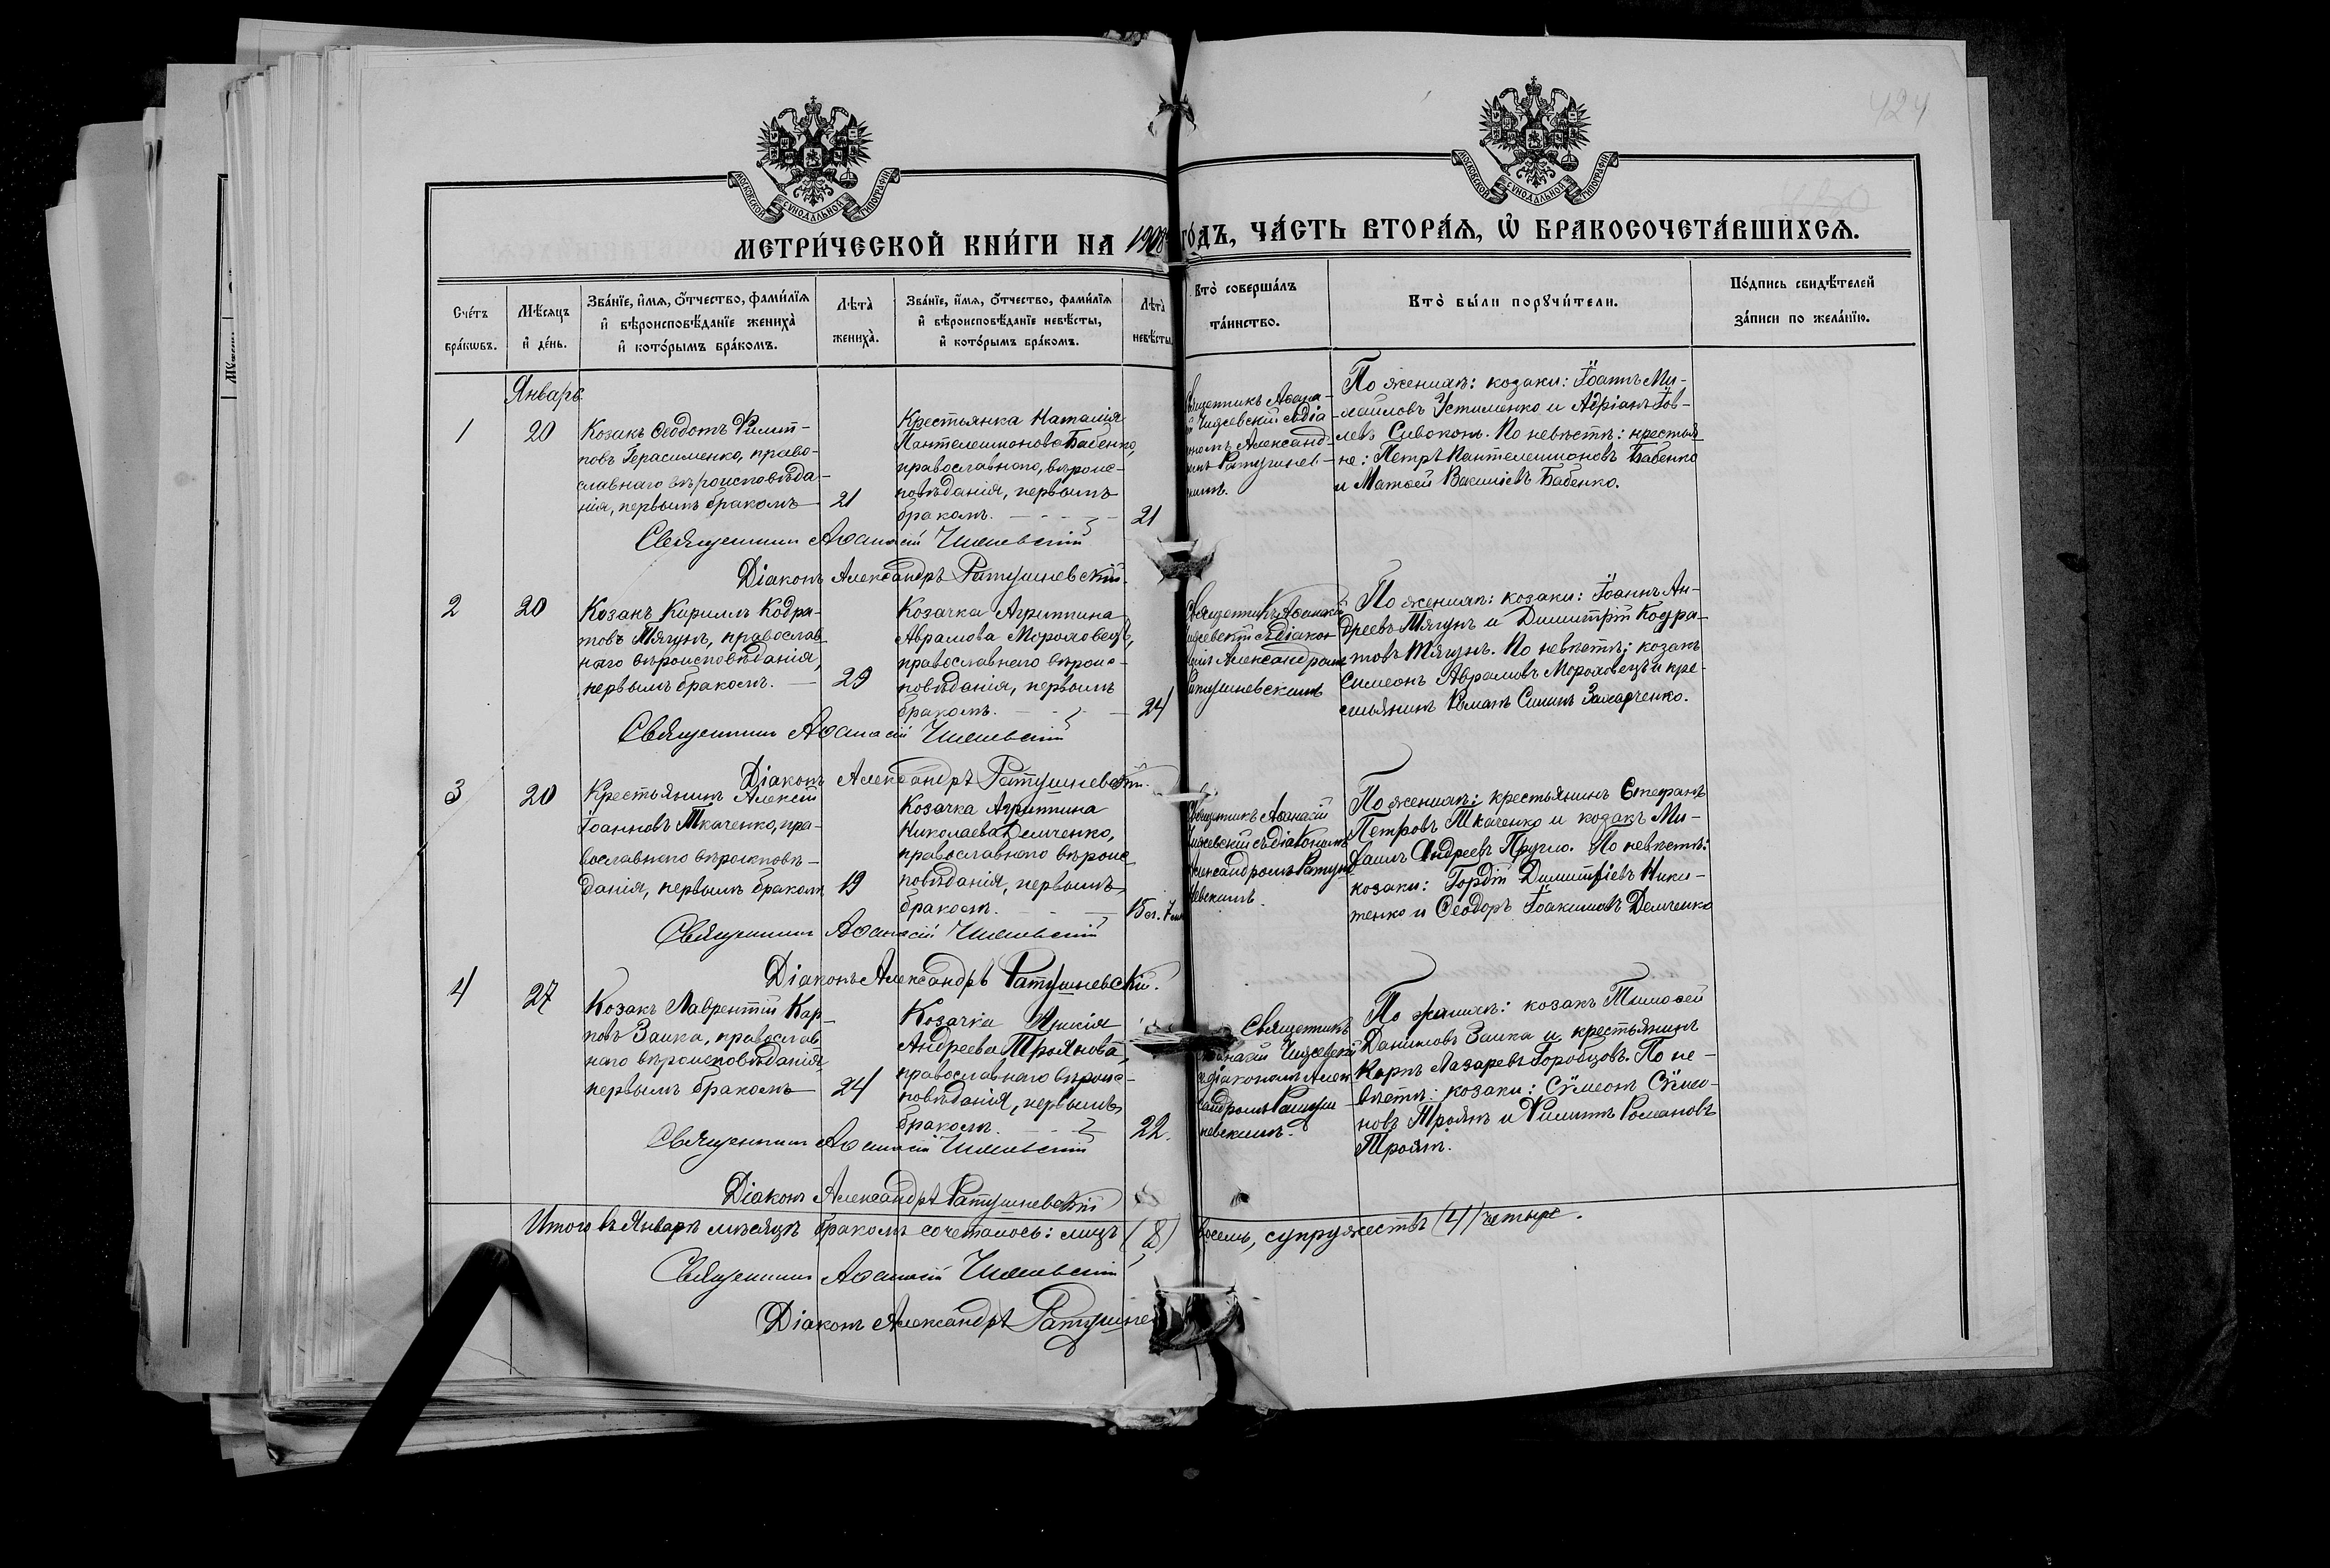 424
МОСКОВСКОЙ СУНОДАЛЬНОЙ ТИПОГРАФІИ
МОСКОВСКОЙ СУНОДАЛЬНОЙ ТИПОГРАФІИ
МЕТРИ́ЧЕСКОЙ КНИ́ГИ НА 1908 ГО́ДЪ, ЧА́СТЬ ВТОРА́Ѧ, Ѡ҆ БРАКОСОЧЕТА́ВШИХСѦ.
Сче́тъ
бра́кѡвъ.
Мѣ́сѧцъ
и҆ де́нь.
Зва́нїе, и҆́мѧ, ѻ҆́тчество, фами́лїѧ
и҆ вѣроисповѣ́данїе жениха̀
и҆ кото́рымъ бра́комъ.
Лѣта̀
жениха̀.
Зва́нїе, и҆́мѧ, ѻ҆́тчество, фами́лїѧ
и҆ вѣроисповѣ́данїе невѣ́сты,
и҆ кото́рымъ бра́комъ.
Лѣта̀
невѣ́сты
Кто̀ соверша́лъ
та́инство.
Кто̀ бы́ли порꙋчи́тели.
По́дпись свидѣ́телей
за́писи по жела́нїю.
Январь.
1
20
Козакъ Ѳеодотъ Филип-
повъ Герасименко, право-
славнаго вѣроисповѣда-
нія, первымъ бракомъ
21
Крестьянка Наталія
Пантелеимонова Бабенко,
православнаго, вѣроис-
повѣданія, первымъ
бракомъ.
21
Священникъ Аѳана-
Чижевскій съ діа
кономъ Александ-
Ратушнев-
скимъ.
По женихѣ: козаки: Іоаннъ Ми-
хаиловъ Устименко и Адріанъ Іов-
левъ Сивоконь. По невѣстѣ: крестья
не: Петръ Пантелеимоновъ Бабенко
и Матѳей Василіевъ Бабенко.
Священникъ Аѳанасій Чижевскій
Діаконъ Александръ Ратушневскій.
2
20
Козакъ Кириллъ Кодра-
товъ Тягунъ, православ
наго вѣроисповѣданія,
первымъ бракомъ.
29
Козачка Агриппина
Аврамова Мороховецъ,
православнаго вѣроис-
повѣданія, первымъ
бракомъ.
24
Священникъ Аѳанасій
Чижевскій съ діакон
Александромъ
Ратушневскимъ
По женихѣ: козаки: Іоаннъ Ан-
дреевъ Тягунъ и Димитрій Кодра-
товъ Тягунъ. По невѣстѣ: козакъ
Симеонъ Аврамовъ Мороховецъ и кре-
стьянинъ Романъ Симинъ Захарченко.
Священникъ Аѳанасій Чижевскій
Діаконъ Александръ Ратушневскій.
3
20
Крестьянинъ Алексій
Іоанновъ Ткаченко, пра-
вославнаго вѣроисповѣ-
данія, первымъ бракомъ
19
Козачка Агриппина
Николаева Демченко,
православнаго вѣроис
повѣданія, первымъ
бракомъ.
15
Священникъ Аѳанасій
Чижевскій съ діакономъ
Александромъ Ратуш
невскимъ.
По женихѣ: крестьянинъ Стефанъ
Петровъ Ткаченко и козакъ Ми-
хаилъ Андреевъ Пругло. По невѣстѣ:
козаки: Гордій Димитріевъ Ники-
тенко и Ѳеодоръ Іоакимовъ Демченко
Священникъ Аѳанасій Чижевскій
Діаконъ Александръ Ратушневскій.
4
27
Козакъ Лаврентій Кар-
повъ Заика, православ
наго вѣроисповѣданія
первымъ бракомъ
24
Козачка
Андреева Троянова,
православнаго вѣроис-
повѣданія, первымъ
бракомъ.
22.
Священникъ
Аѳанасій Чижевскій
съ діакономъ Алек
сандромъ Ратуш-
невскимъ.
По женихѣ: козакъ Тимоѳей
Даниловъ Заика и крестьянинъ
Карпъ Лазаревъ Горобцовъ. По не-
вѣстѣ: козаки: Сѵмеонъ Сѵмео-
новъ Троянъ и Филиппъ Романовъ
Троянъ.
Священникъ Аѳанасій Чижевскій
Діаконъ Александръ Ратушневскій
Итого въ Январѣ мѣсяцѣ бракомъ сочеталось: лицъ (8) восемь, супружествъ (4) четыре.
Священникъ Аѳанасій Чижевскій
Діаконъ Александръ Ратушне